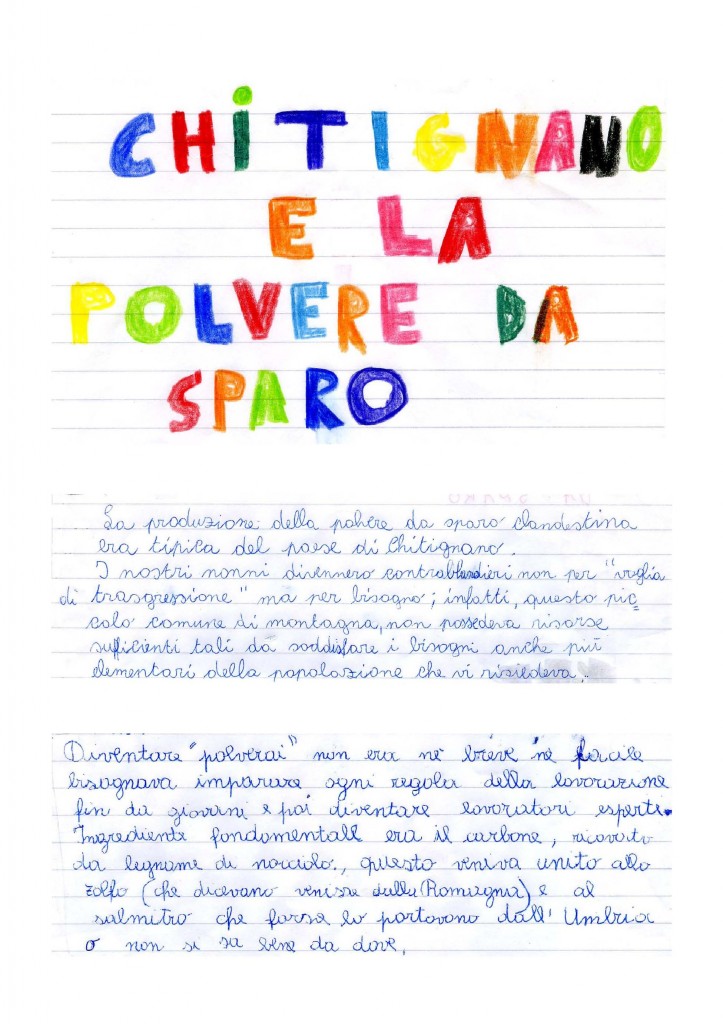 CHITIGNANO
E LA
POLVERE DA
SPARO
La produzione della polvere da sparo clandestina
era tipica del paese di Chitignano.
I nostri nonni divennero contrabbandieri non per "voglia
di trasgressione" ma per bisogno; infatti, questo pic
colo comune di montagna, non possedeva risorse
sufficienti tali da soddisfare i bisogni anche più
elementari della popolazione che vi risiedeva.
Diventare "polverai" non era nè breve nè facile
bisognava imparare ogni regola della lavorazione
fin da giovani e poi diventare lavoratori esperti.
Ingrediente fondamentale era il carbone, ricavato
da legname di nocciolo., questo veniva unito allo
zolfo (che dicevano venisse dalla Romagna) e al
salnitro che forse lo portavano dall'Umbria
o non si sa bene da dove.